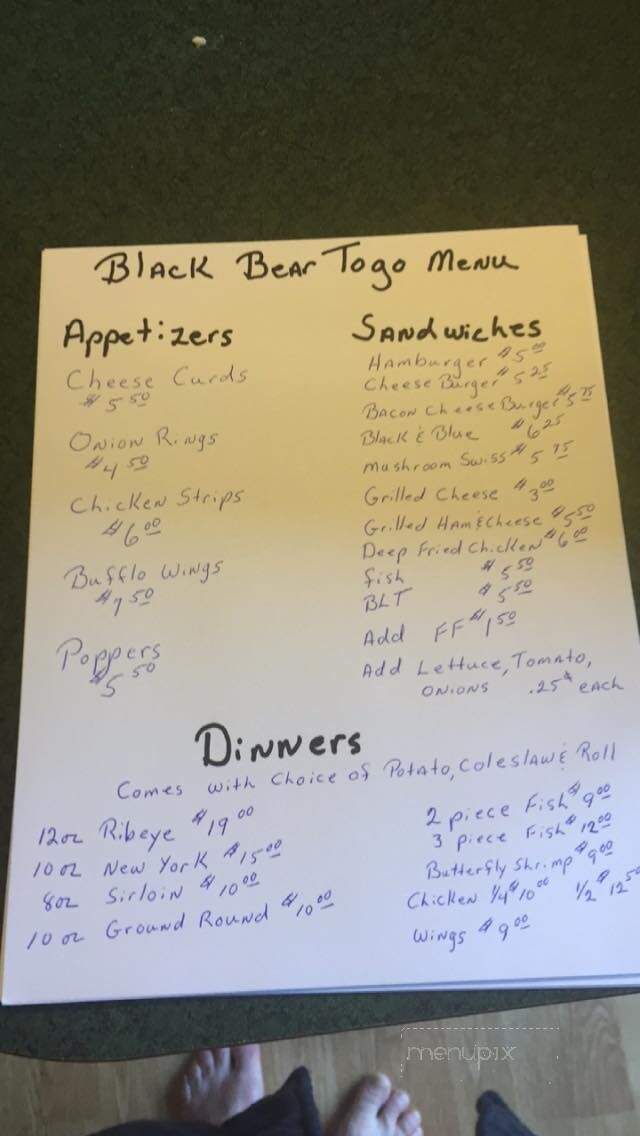 Black Bear Togo Menu
Appetizers
Cheese Curds
$5.50
Onion Rings
$4.50
Chicken Strips
$6.00
Bufflo Wings
$7.50
Poppers
$5.50
Sandwiches
Hamburger $5.00
Cheese Burger $5.25
Bacon Cheese Burger $5.75
Black & Blue $6.25
Mushroom Swiss $5.75
Grilled Cheese $3.00
Grilled Ham & Cheese $5.50
Deep Fried Chicken $6.00
Fish $5.50
BLT $5.50
Add FF $1.50
Add Lettuce, Tomato,
Onions .25¢ each
Dinners
Comes with choice of Potato, Coleslaw & Roll
12oz Ribeye $19.00
10oz New York $15.00
8oz Sirloin $10.00
10oz Ground Round $10.00
2 piece Fish $9.00
3 piece Fish $12.00
Butterfly Shrimp $9.00
Chicken 1/4 $10.00 1/2 $12.50
Wings $9.00
menupix